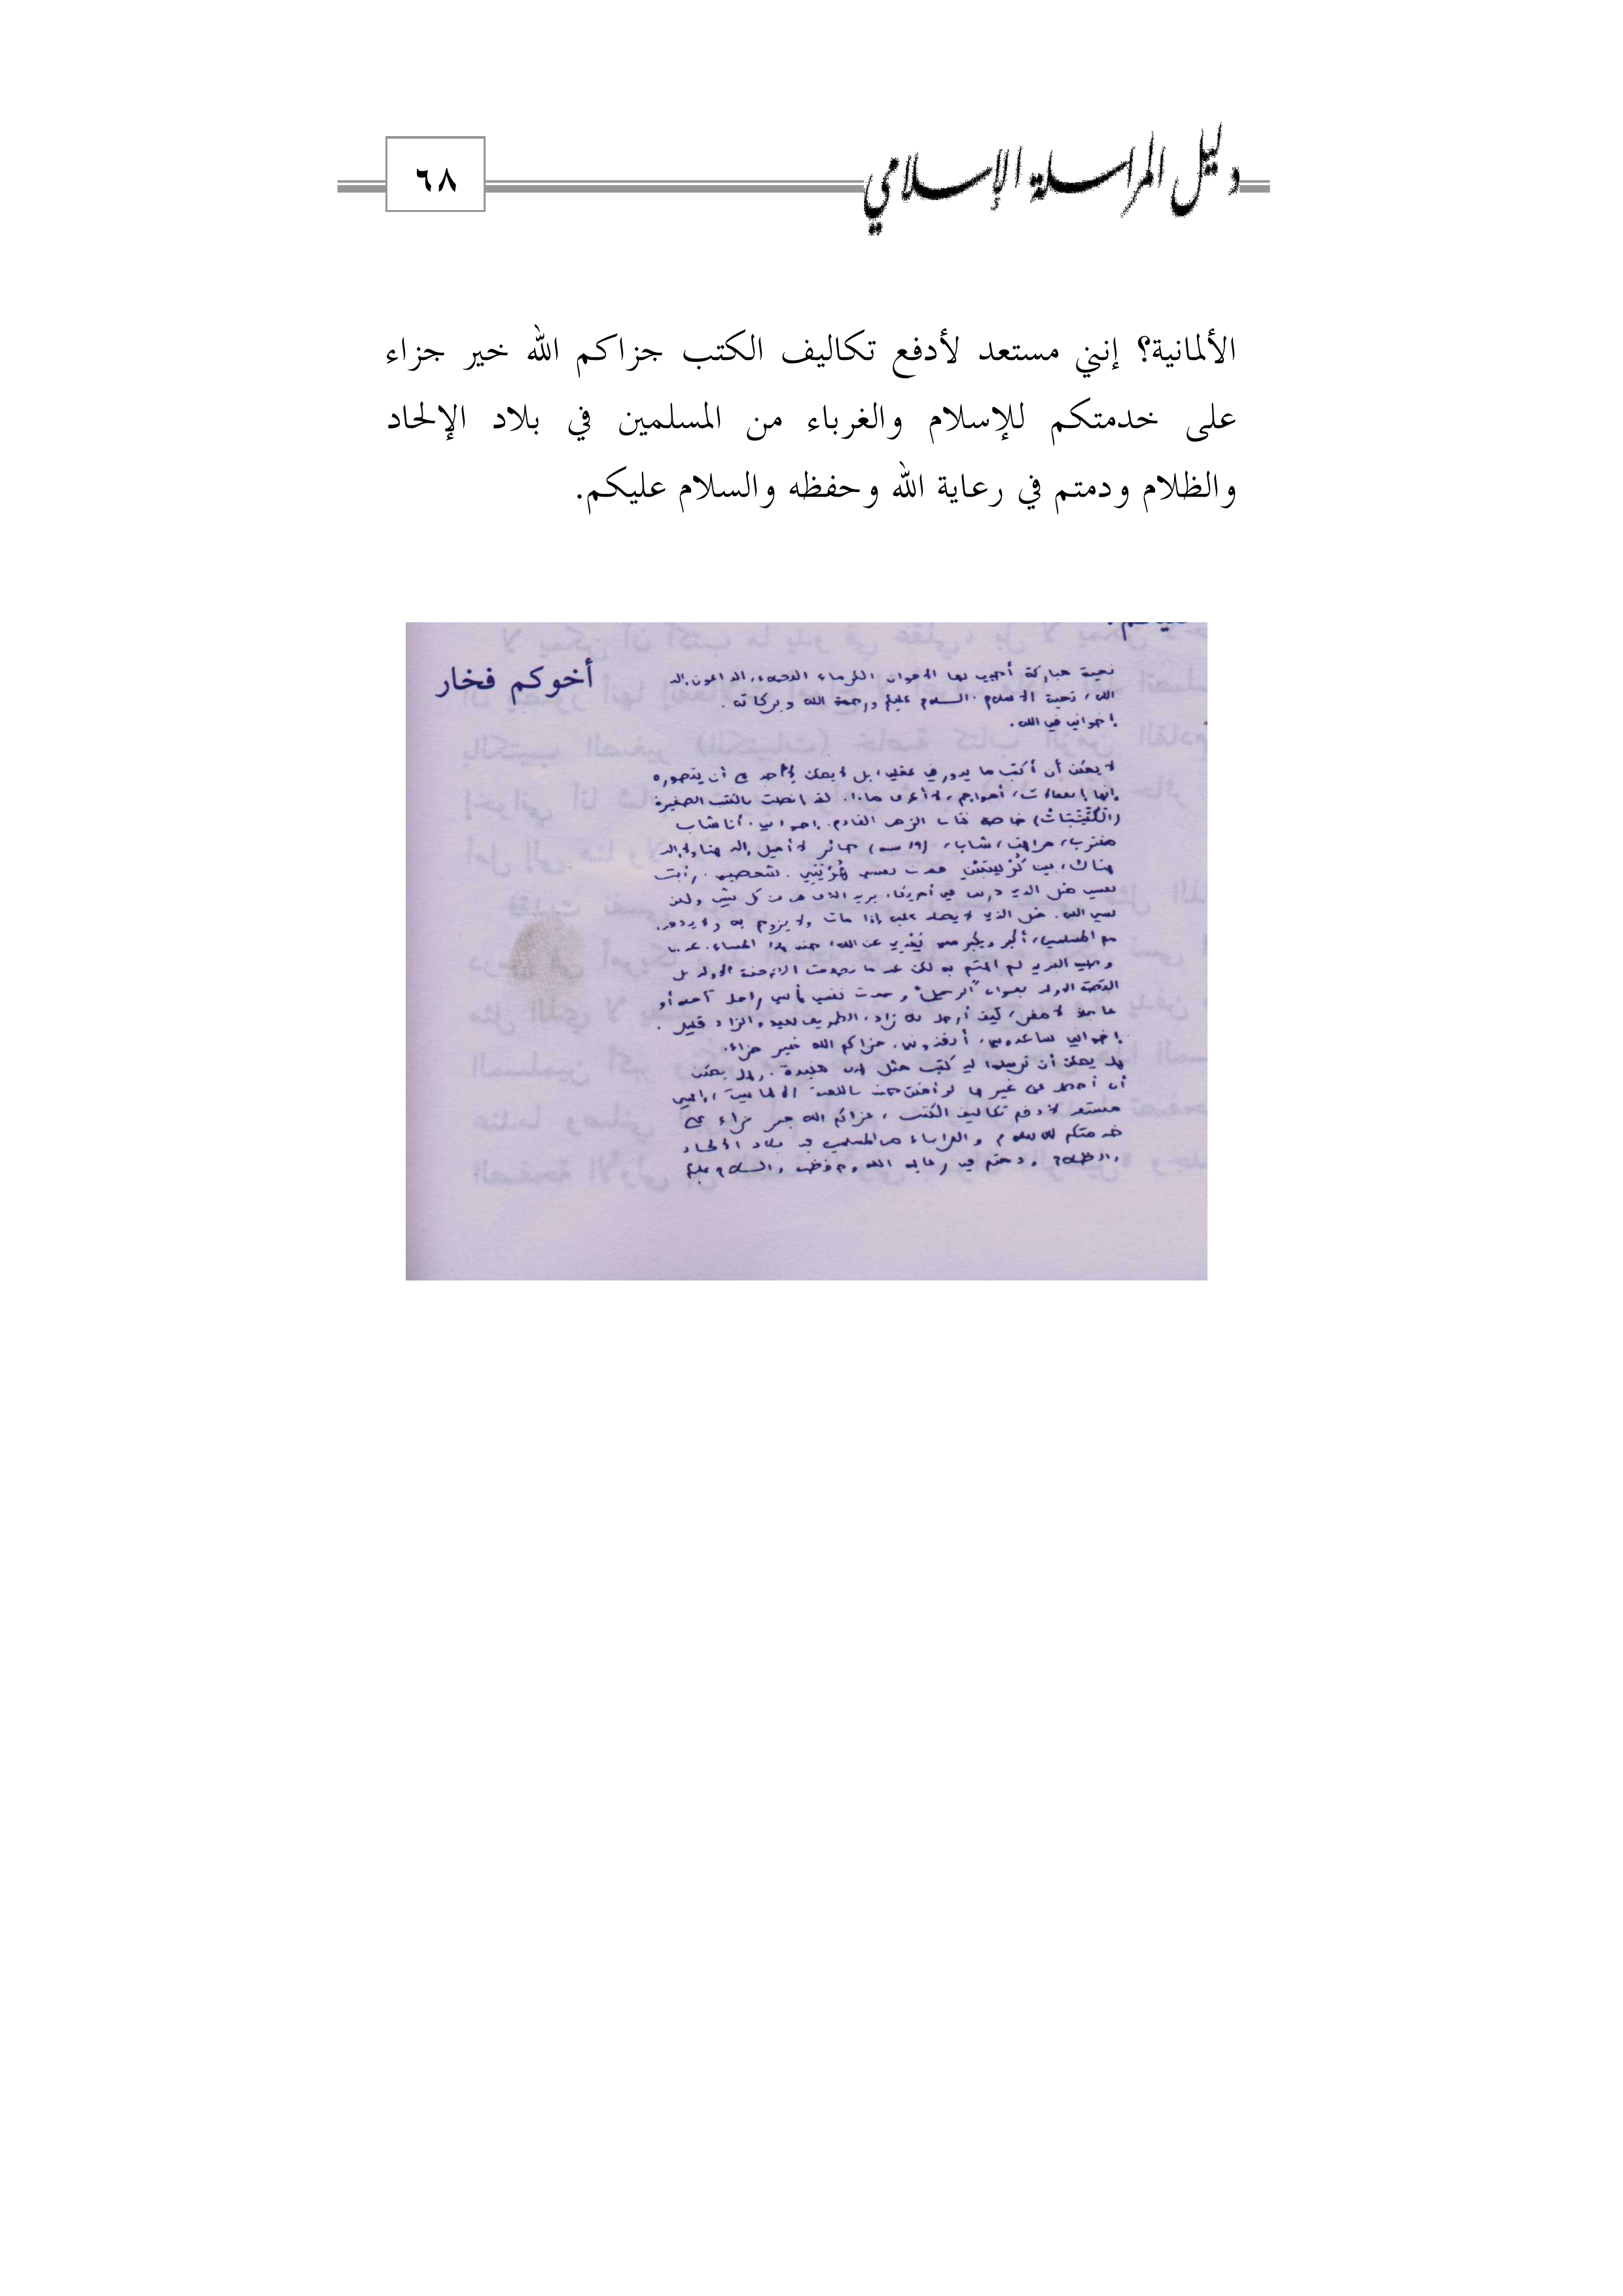 دليل المراسلة الإسلامي
٦٨
الألمانية؟ إنني مستعد لأدفع تكاليف الكتب جزاكم الله خير جزاء
على خدمتكم للإسلام والغرباء من المسلمين في بلاد الإلحاد
والظلام ودمتم في رعاية الله وحفظه والسلام عليكم.
أخوكم فخار
تحية مباركة أحيي بها الإخوان الكرماء
الله، تحية الإسلام. السلام عليكم ورحمة الله وبركاته.
إخواني في الله.
لا يمكن أن أكتب ما يدور في عقلي، بل لا يمكن لأحد أن يتصوره
إنها انفعالات، أمواج، لا أعرف ماذا. لقد اتصلت بالكتب الصغيرة
(الكتيبات) خاصة كتاب الزمن القادم. إخواني. أنا شاب
مغترب، مراهق، شاب، (١٩ سنة) حائر لا أميل إلى هنا ولا إلى
هناك، بين
نفسي مثل الذي درس في أمريكا، يريد من كل شيء ولكن
نسي الله. مثل الذي لا يصلى عليه إذا مات ولا
مع المسلمين، أكبر عن الله، هذا المساء.
البريد لم أهتم به لكن عندما الصفحة الأولى بل
الصفحة الأولى بعنوان "الرحيل" وجدت نفسي راحل
كيف أرحل بلا زاد، الطريق بعيد والزاد قليل.
إخواني ساعدوني، أنقذوني، جزاكم الله خير جزاء.
هل يمكن أن ترسلوا لي كتب مثل هذه مفيدة. وهل يمكن
أن أحصل على غير ما باللغة الألمانية، إنني
مستعد لأدفع تكاليف الكتب، جزاكم الله خير جزاء على
خدمتكم للإسلام والغرباء من المسلمين في بلاد الإلحاد
والظلام ودمتم في رعاية الله وحفظه والسلام عليكم